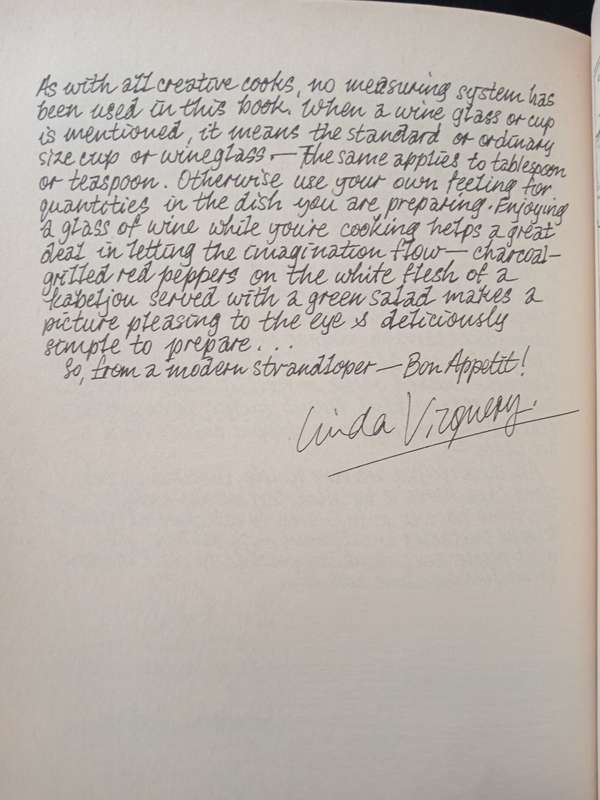 As with all creative cooks, no measuring system has
been used in this book. When a wine glass or cup
is mentioned, it means the standard or ordinary
size cup or wineglass. — The same applies to tablespoon
or teaspoon. Otherwise use your own feeling for
quantities in the dish you are preparing. Enjoying
a glass of wine while you're cooking helps a great
deal in letting the imagination flow — charcoal-
grilled red peppers on the white flesh of a
kabeljou served with a green salad makes a
picture pleasing to the eye & deliciously
simple to prepare...
So, from a modern strandloper — Bon Appetit!
Linda Virquery.